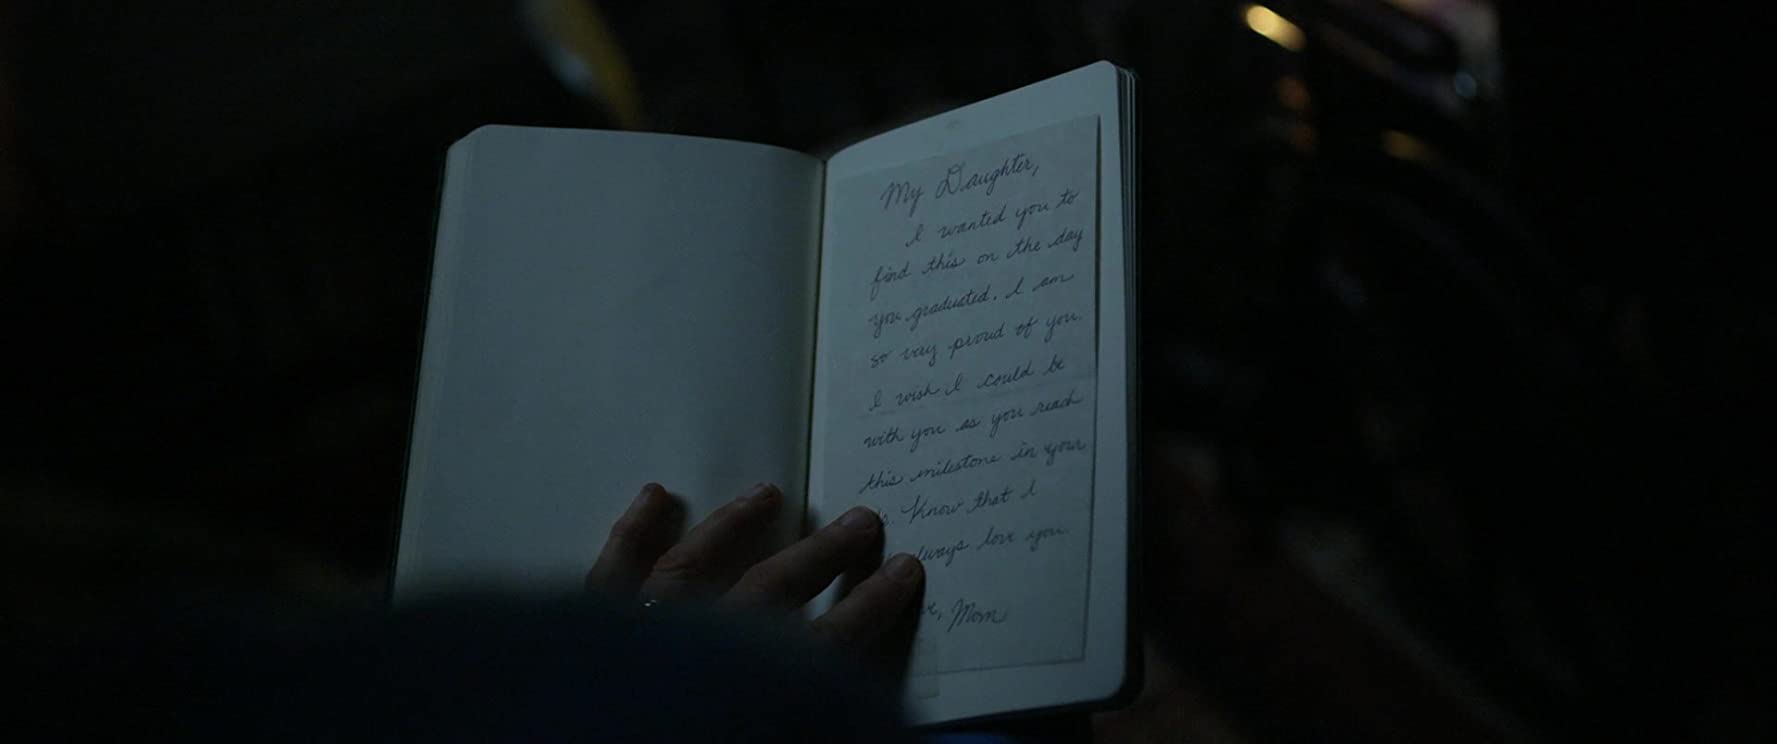 My Daughter,
I wanted you to
find this on the day
you graduated. I am
so very proud of you.
I wish I could be
with you as you reach
this milestone in your
Know that I
always love you.
Mom